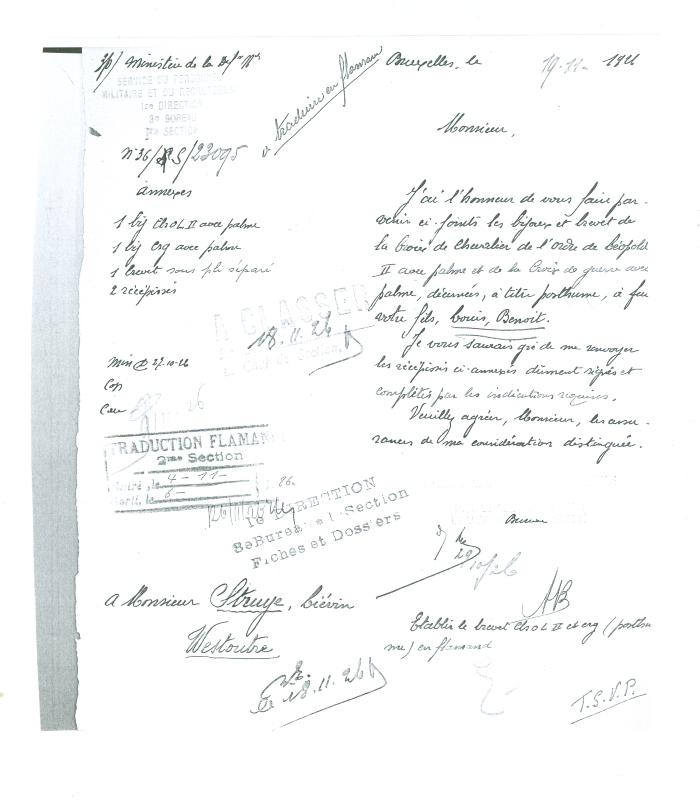 Ministère de la Dfse Nle
Bruxelles, le 19-11- 1926
SERVICE DU PERSONNEL
MILITAIRE ET DU RECRUTEMENT
1re DIRECTION
3e BUREAU
2me SECTION
à traduire en flamand
N° 36/ S/23095
Monsieur,
annexes
1 bij Ch O L II avec palme
1 bij Crg avec palme
1 brevet sous pli séparé
2 récépissés
J'ai l'honneur de vous faire par-
venir ci-joints les bijoux et brevet de
la Croix de Chevalier de l'ordre de Léopold
II avec palme et de la Croix de guerre avec
palme, décernés, à titre posthume, à feu
votre fils, Louis, Benoit.
Je vous saurais gré de me renvoyer
les récépissés ci-annexés dûment signés et
complétés par les indications requises.
Veuillez agréer, Monsieur, les assu-
rances de ma considération distinguée.
A CLASSER
18.11.26
Le Chef de Section,
Min 27-10-26
Cop
TRADUCTION FLAMAN
2me Section
Entré, le 4-11-
Sorti, le 6-
26
1e DIRECTION
3e Bureau Section
Fiches et Dossiers
29/10/26
AB
A Monsieur Struye, Liévin
Westoutre
Etablir le brevet Ch O L II et crg (posthu
me) en flamand
Le 18.11.26
T.S.V.P.